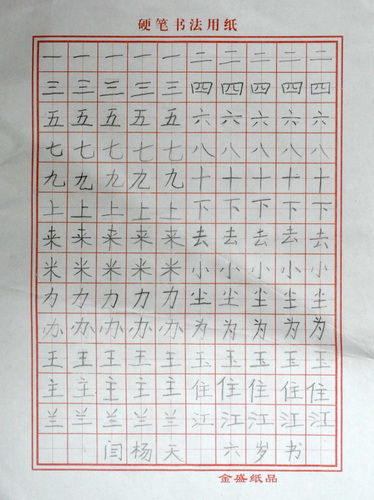 硬笔书法用纸
一一一一一二二二二二
三三三三三四四四四四
五五五五五六六六六六
七七七七七八八八八八
九九九九九十十十十十
上上上上上下下下下下
来来来来来去去去去去
米米米米米小小小小小
力力力力力尘尘尘尘尘
办办办办办为为为为为
王王王王王玉玉玉玉玉
主主主主主住住住住住
兰兰兰兰兰江江江江江
闫杨天 六岁书
金盛纸品